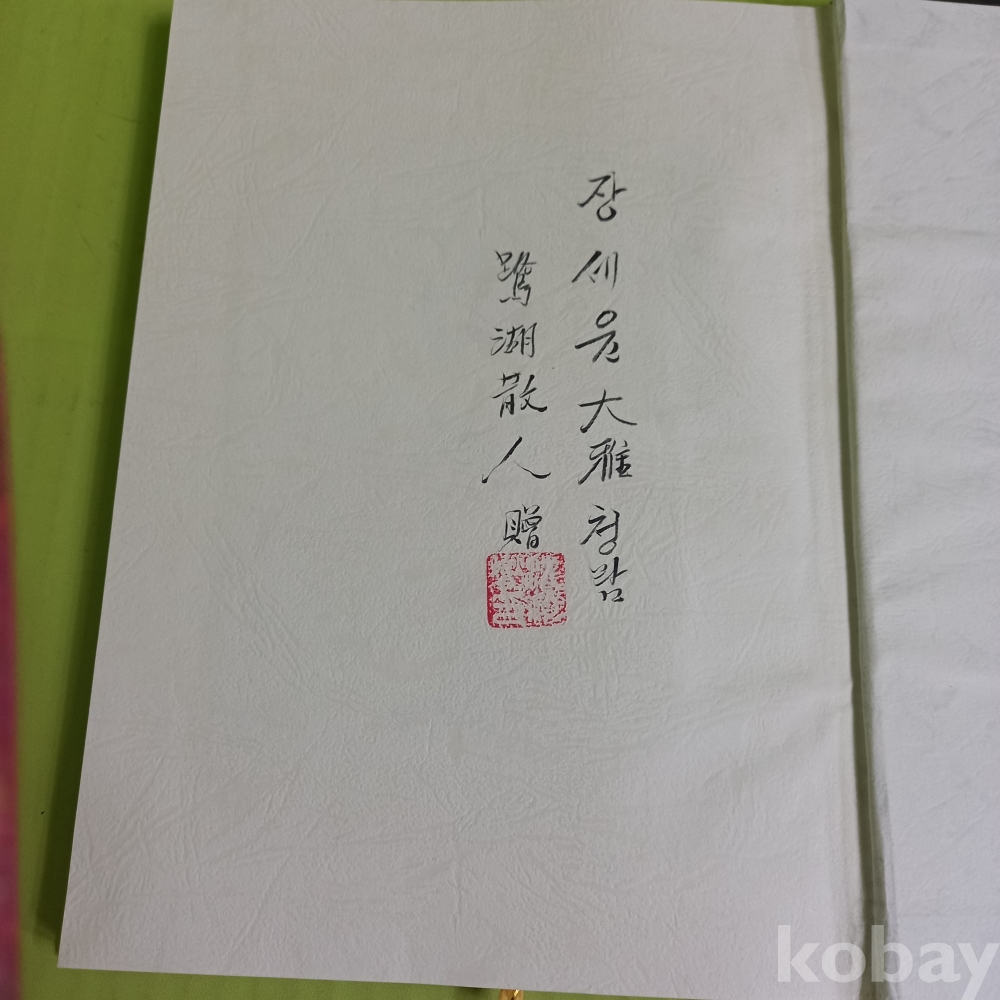 장세윤大雅청람
鷺湖散人 贈
kobay